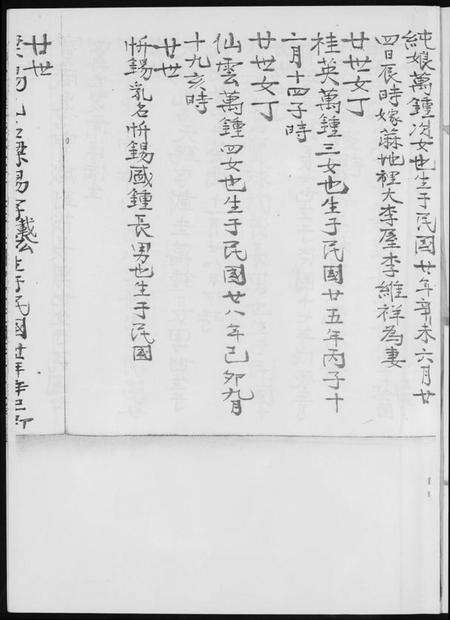 純娘萬鍾次女也生于民國廿年辛未六月廿
四日辰時嫁蔴地裡大李屋李維祥為妻
廿世女丁
桂英萬鍾三女也生于民國廿五年丙子十
二月十四子時
廿世女丁
仙雲萬鍾四女也生于民國廿八年己卯九月
十九亥時
廿世
忻錫乳名忻錫國鍾長男也生于民國
廿世
錫 錫 生于民國